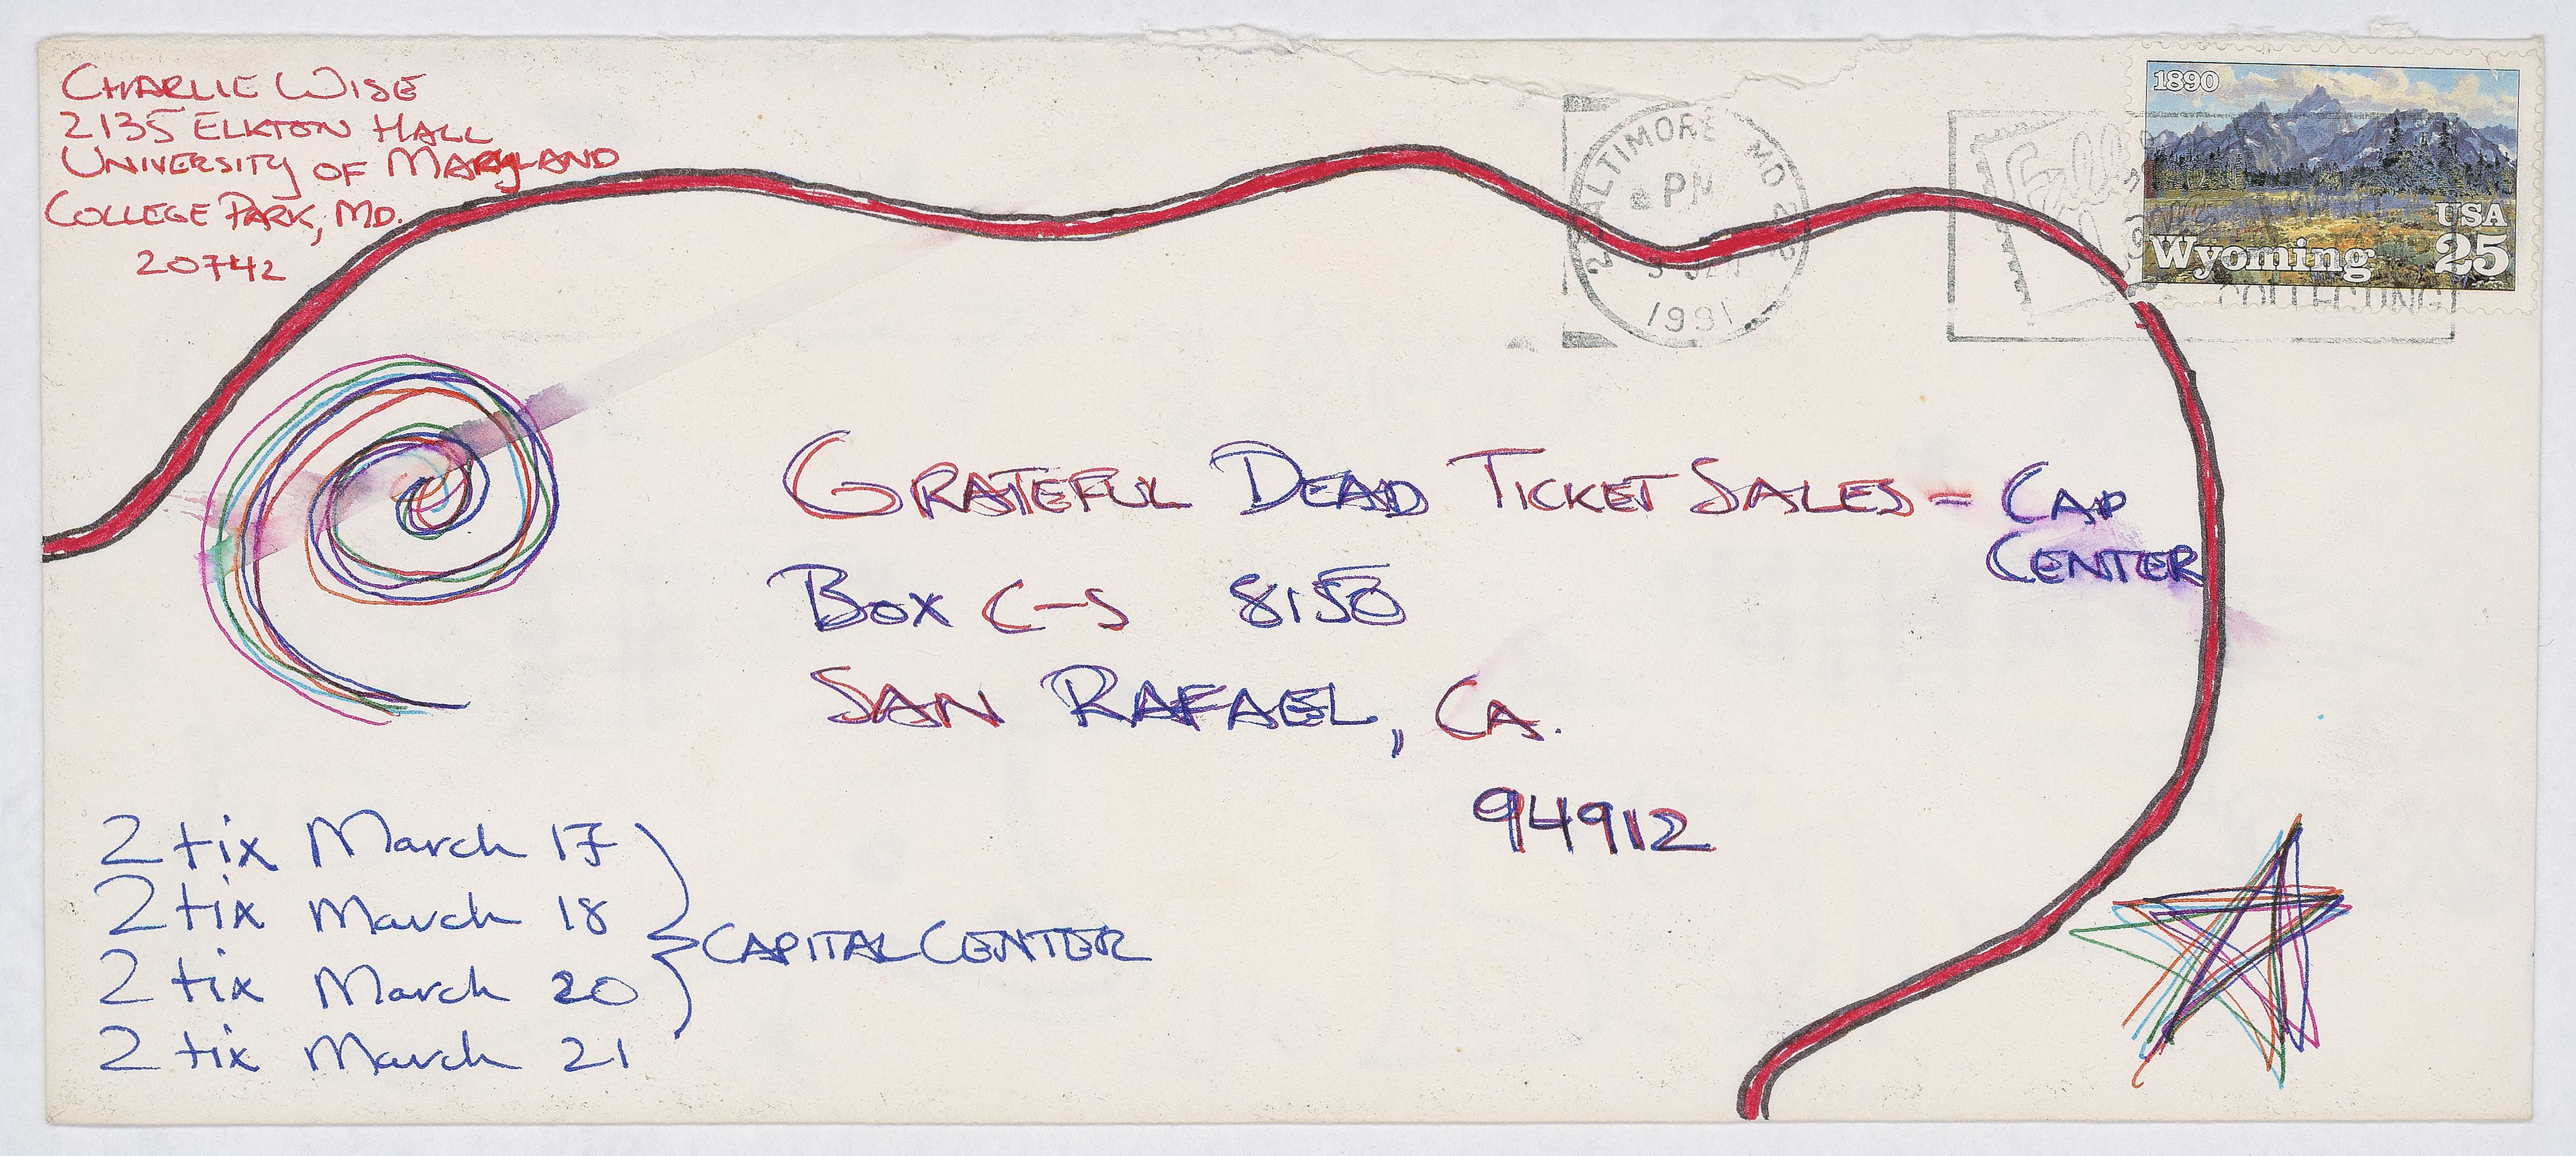 CHARLIE WISE
2135 ELKTON HALL
UNIVERSITY OF MARYLAND
COLLEGE PARK, MD.
20742
BALTIMORE MD 212
PM
1991
COLLECTING
1890
USA
Wyoming 25
GRATEFUL DEAD TICKET SALES - CAP
CENTER
BOX C-S 8150
SAN RAFAEL, CA.
94912
2 tix March 17
2 tix March 18
2 tix March 20
2 tix March 21
CAPITAL CENTER